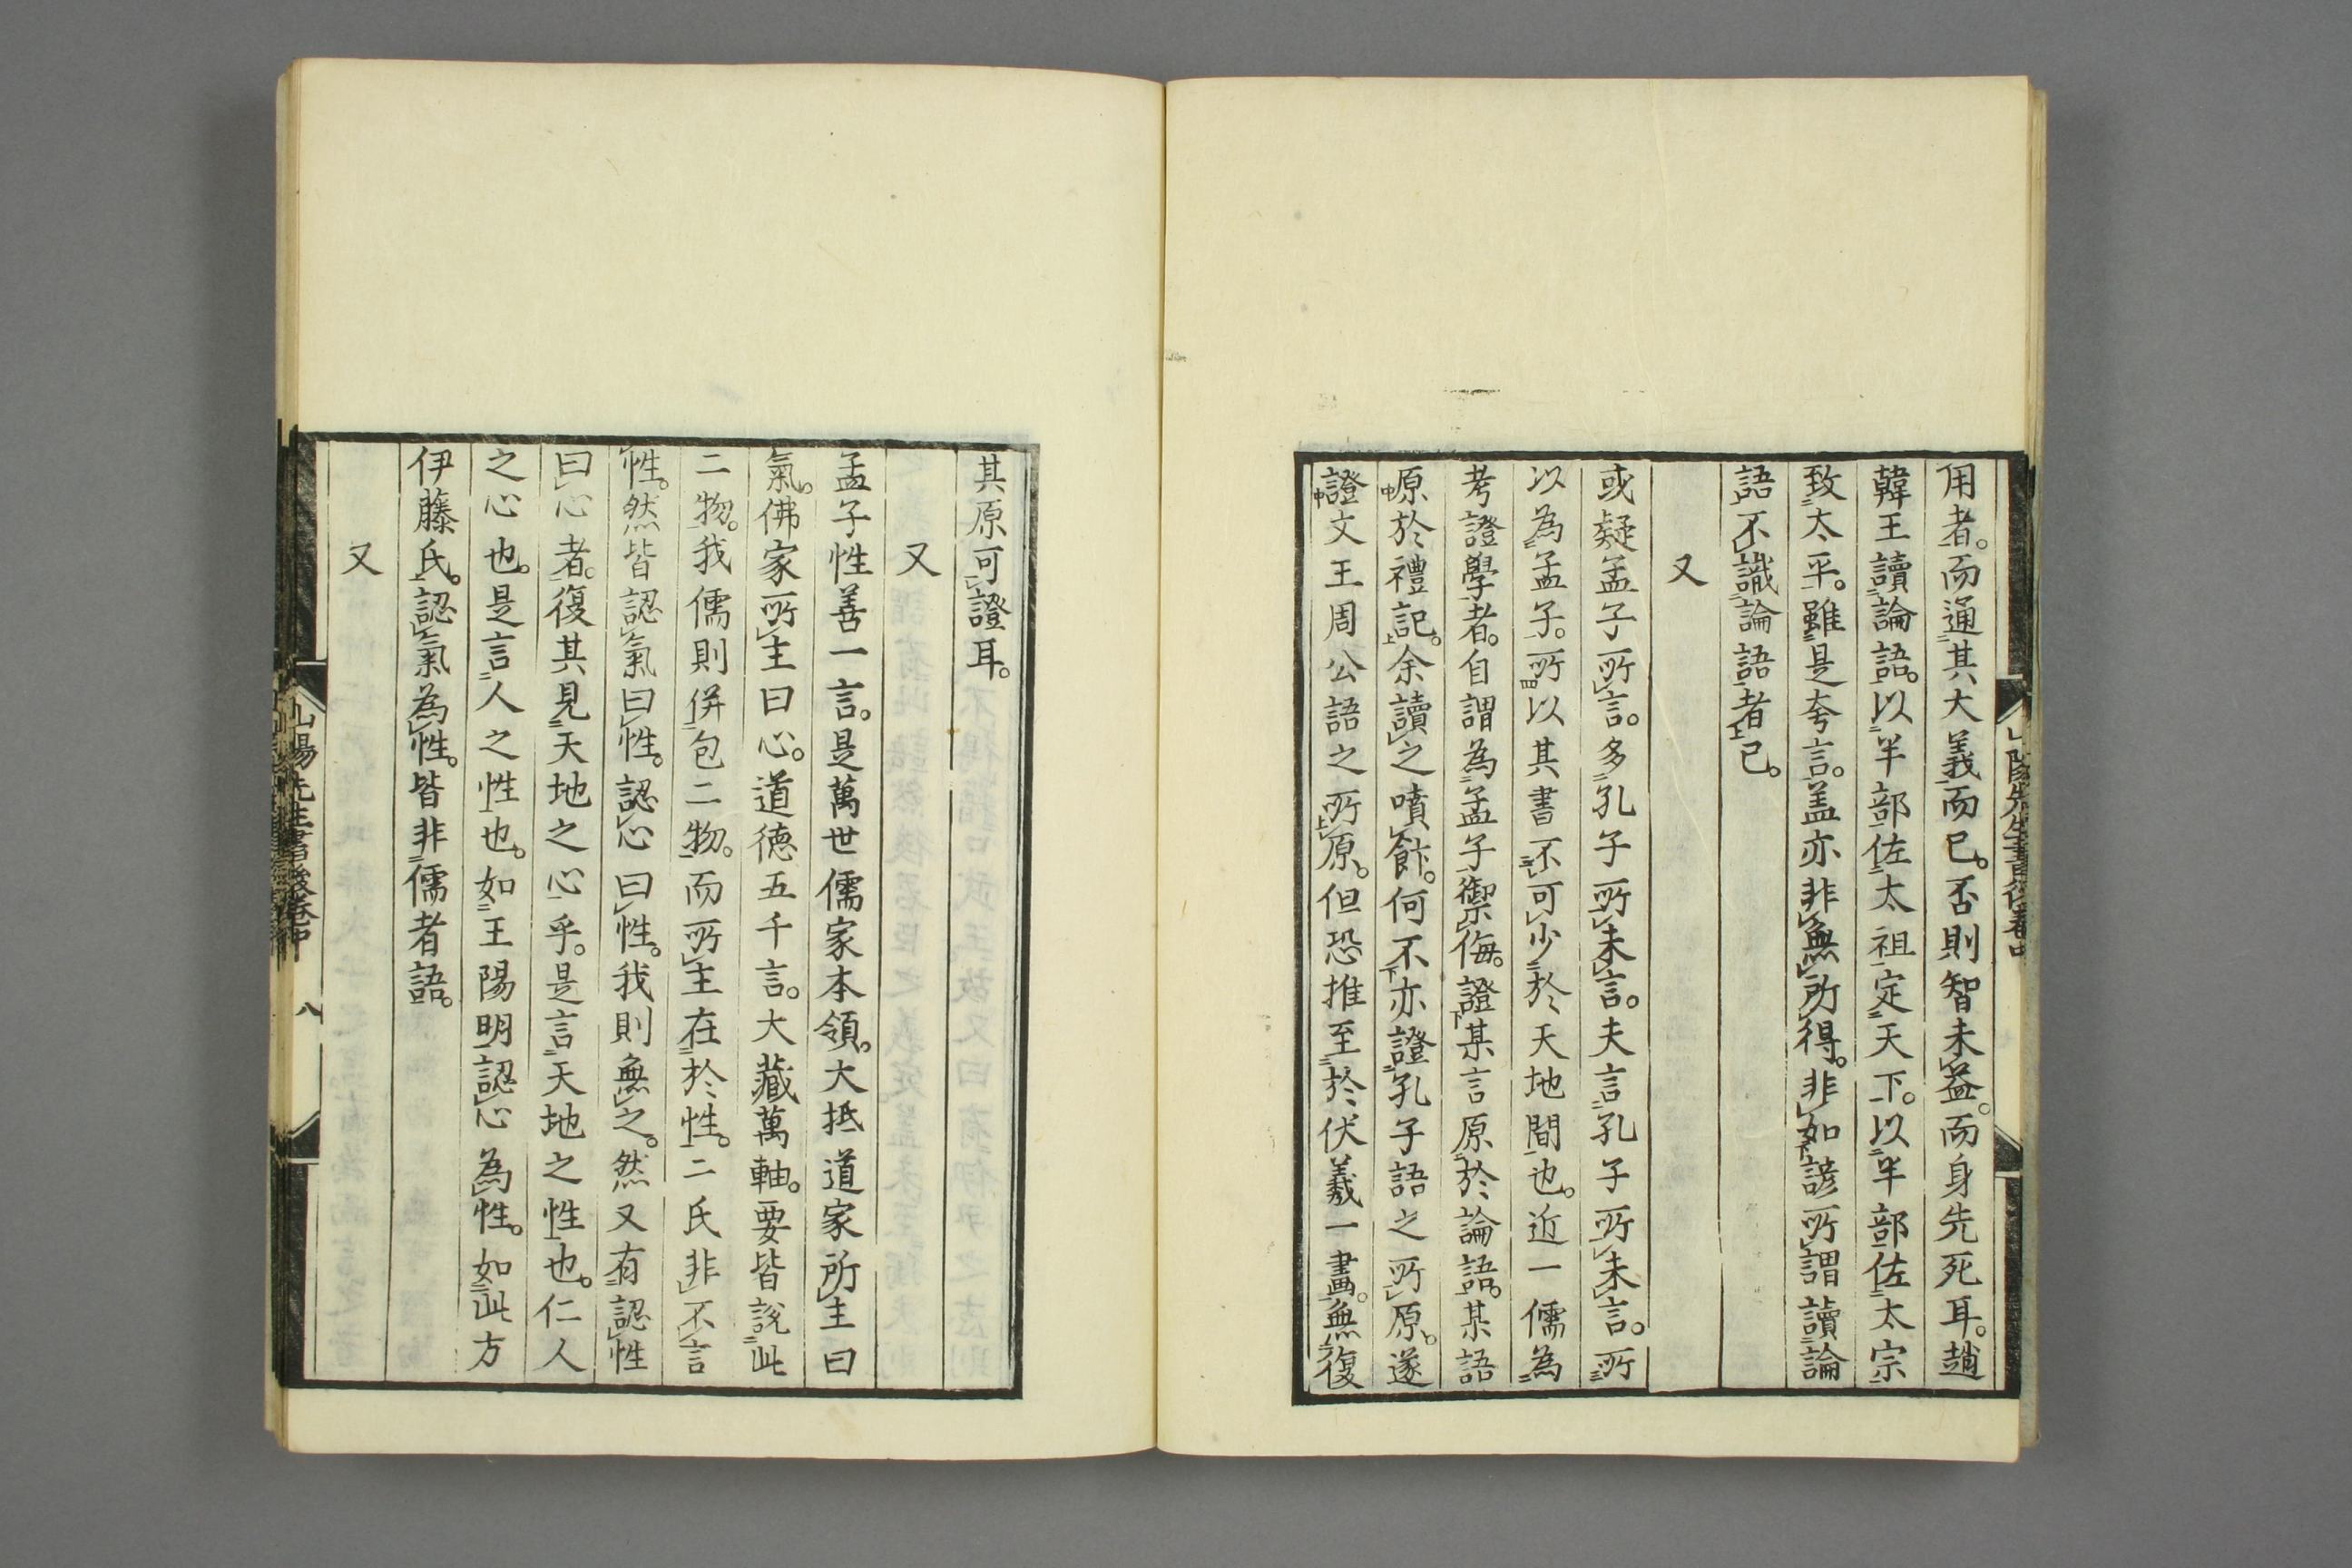 用者。而通其大義而已。否則智未益。而身先死耳。趙
韓王讀論語。以半部佐太祖定天下。以半部佐太宗
致太平。雖是夸言。盖亦非無所得。非如諺所謂讀論
語不識論語者已。
又
或疑孟子所言。多孔子所未言。夫言孔子所未言。所
以為孟子。所以其書不可少於天地間也。近一儒為
考證學者。自謂為孟子禦侮。證某言原於論語。某語
原於禮記。余讀之噴飯。何不亦證孔子語之所原。遂
證文王周公語之所原。但恐推至於伏羲一畫。無復
山陽先生書後卷中
其原可證耳。
又
孟子性善一言。是萬世儒家本領。大抵道家所主曰
氣。佛家所主曰心。道德五千言。大藏萬軸。要皆說此
二物。我儒則併包二物。而所主在於性。二氏非不言
性。然皆認氣曰性。認心曰性。我則無之。然又有認性
曰心者。復其見天地之心乎。是言天地之性也。仁人
之心也。是言人之性也。如王陽明認心為性。如此方
伊藤氏。認氣為性。皆非儒者語。
又
山陽先生書後卷中 八